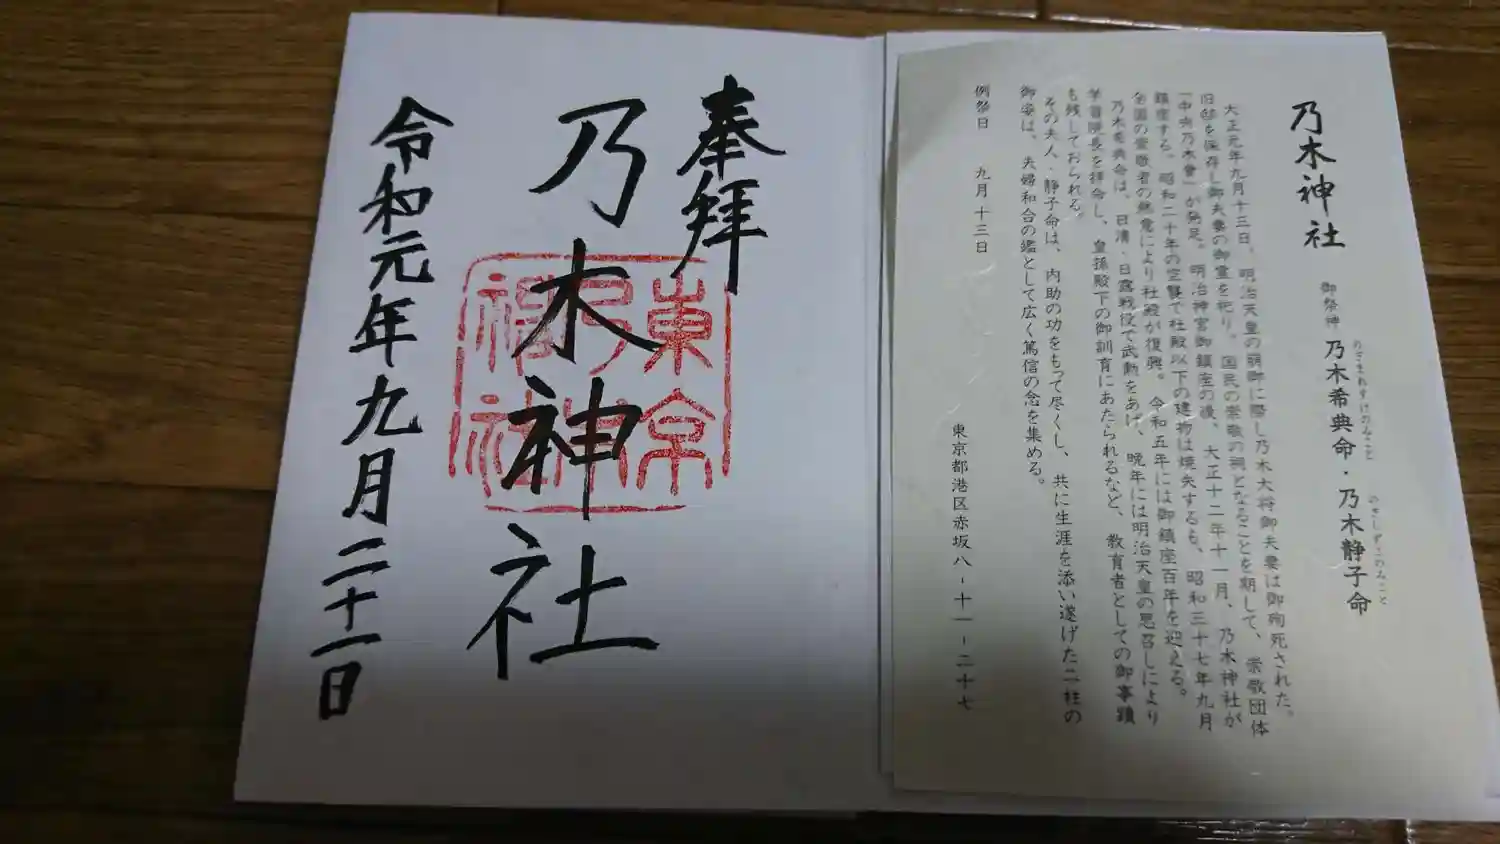 乃木神社
御祭神 乃木希典命・乃木静子命
のぎまれすけのみこと
のぎしずこのみこと
大正元年九月十三日、明治天皇の崩御に際し乃木大将御夫妻は御殉死された。
旧邸を保存し御夫妻の御霊を祀り、国民の崇敬の祠となることを期して、崇敬団体
「中央乃木會」が発足。明治神宮御鎮座の後、大正十二年十一月、乃木神社が
鎮座する。昭和二十年の空襲で社殿以下の建物は焼失するも、昭和三十七年九月
全国の崇敬者の熱意により社殿が復興。令和五年には御鎮座百年を迎える。
乃木希典命は、日清・日露戦役で武勲をあげ、晩年には明治天皇の思召しにより
学習院長を拝命し、皇孫殿下の御訓育にあたられるなど、教育者としての御事蹟
も残しておられる。
その夫人・静子命は、内助の功をもって尽くし、共に生涯を添い遂げた二柱の
御姿は、夫婦和合の鑑として広く篤信の念を集める。
例祭日 九月十三日
東京都港区赤坂八-十一-二十七
奉拝
乃木神社
東京
乃木
神社
令和元年九月二十一日